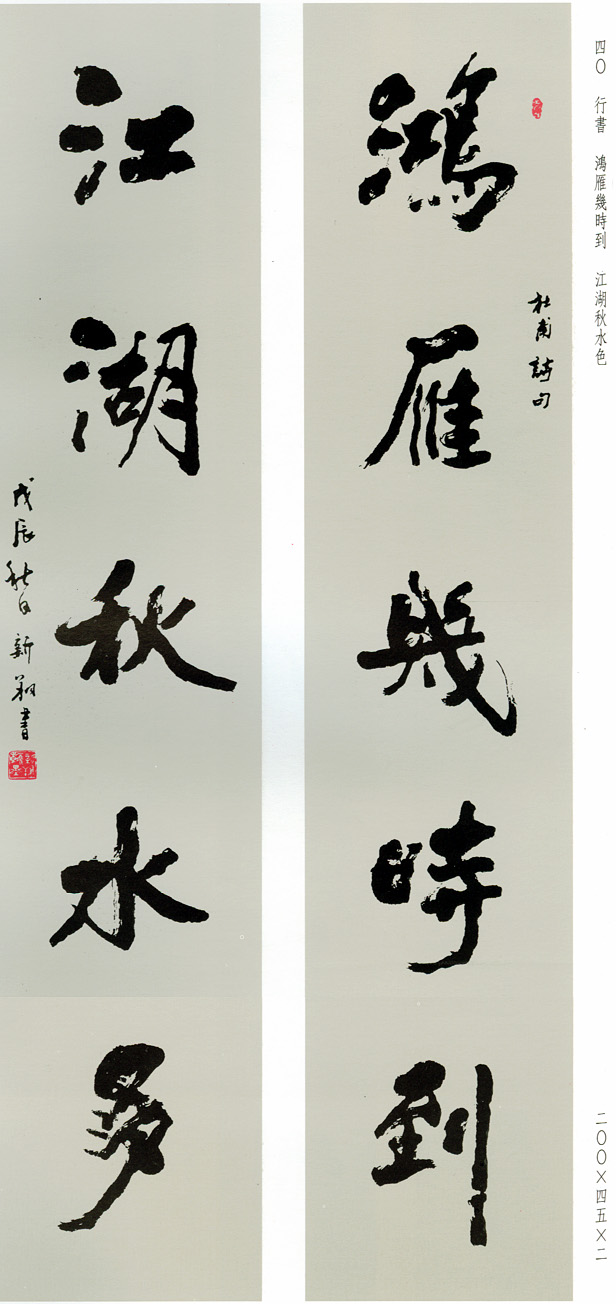 四〇 行書 鴻雁幾時到 江湖秋水色
二〇〇×四五×二
杜甫詩句
鴻雁幾時到
江湖秋水多
戊辰秋日新翔書